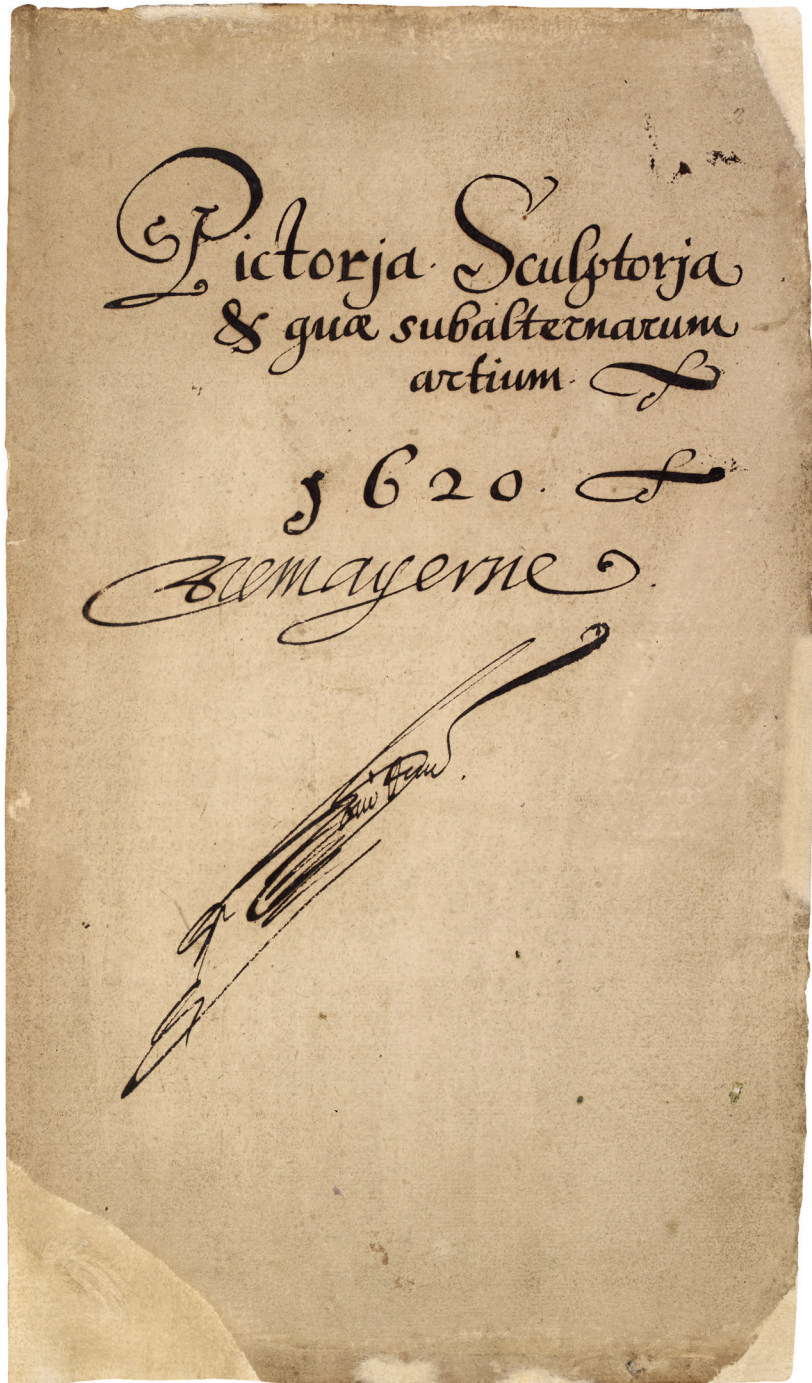 Pictorja Sculptorja
& quæ subalternarum
artium.
1620.
demayerne
2